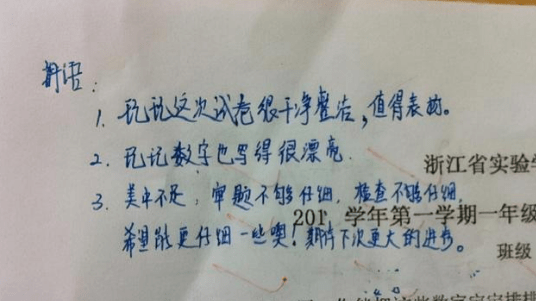 期语：
1. 玑玑这次试卷很干净整洁，值得表扬。
2. 玑玑数字也写得很漂亮.
3. 美中不足，审题不够仔细，检查不够仔细，
希望能更仔细一些噢！期待下次更大的进步。
浙江省实验学
201 学年第一学期一年级
班级